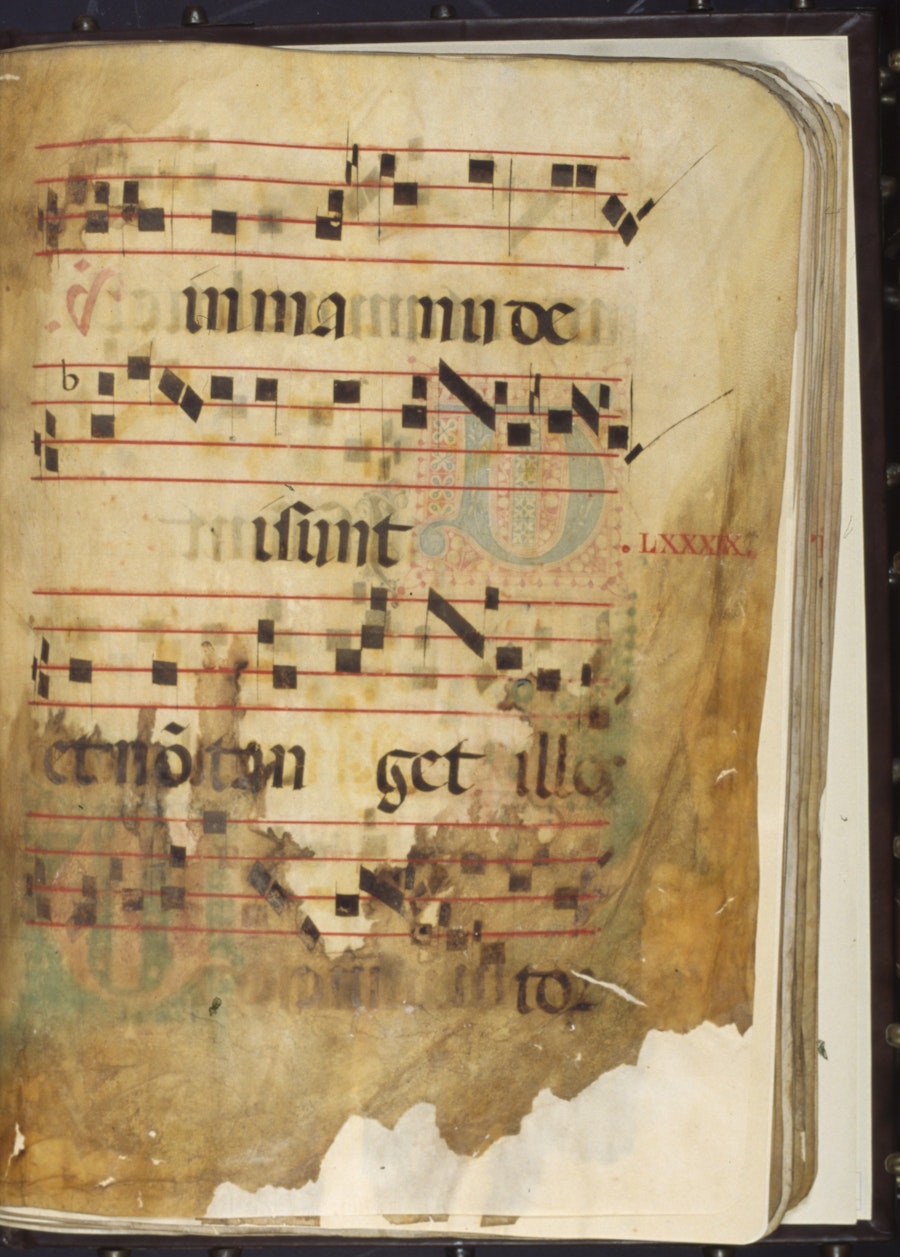 in ma nu de
i sunt
. LXXXIX.
et nō tan get illos
tor